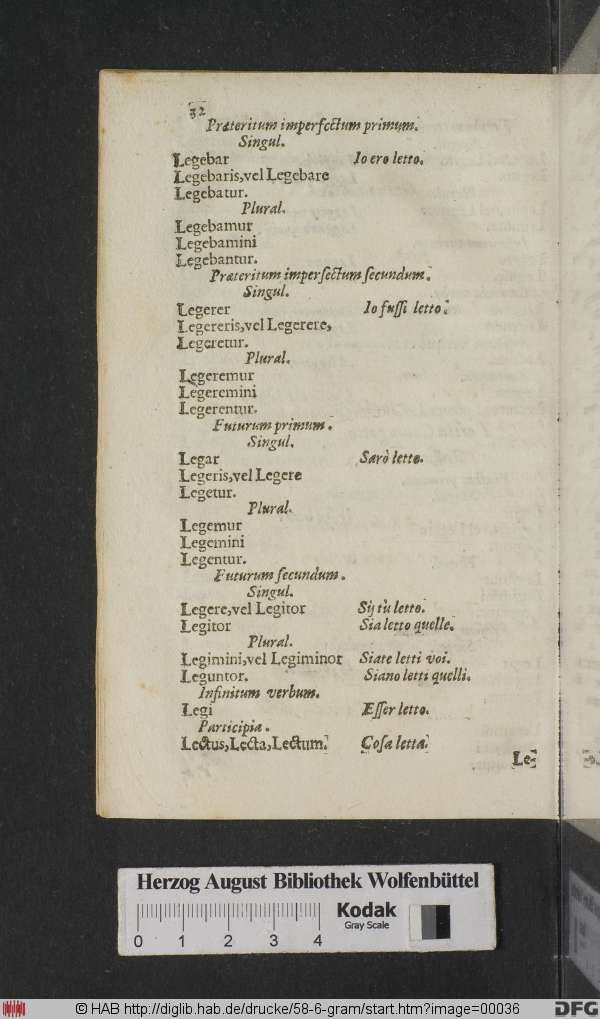 32
Præteritum imperfectum primum.
Singul.
Legebar Io ero letto.
Legebaris, vel Legebare
Legebatur.
Plural.
Legebamur
Legebamini
Legebantur.
Præteritum imperfectum secundum.
Singul.
Legerer Io fussi letto.
Legereris, vel Legerere,
Legeretur.
Plural.
Legeremur
Legeremini
Legerentur.
Futurum primum.
Singul.
Legar Sarò letto.
Legeris, vel Legere
Legetur.
Plural.
Legemur
Legemini
Legentur.
Futurum secundum.
Singul.
Legere, vel Legitor Sij tù letto.
Legitor Sia letto quelle.
Plural.
Legimini, vel Legiminor Siate letti voi.
Leguntor. Siano letti quelli.
Infinitum verbum.
Legi Esser letto.
Participia.
Lectus, Lecta, Lectum. Cosa letta.
Le-
Herzog August Bibliothek Wolfenbüttel
0 1 2 3 4
Kodak
Gray Scale
© HAB http://diglib.hab.de/drucke/58-6-gram/start.htm?image=00036
DFG